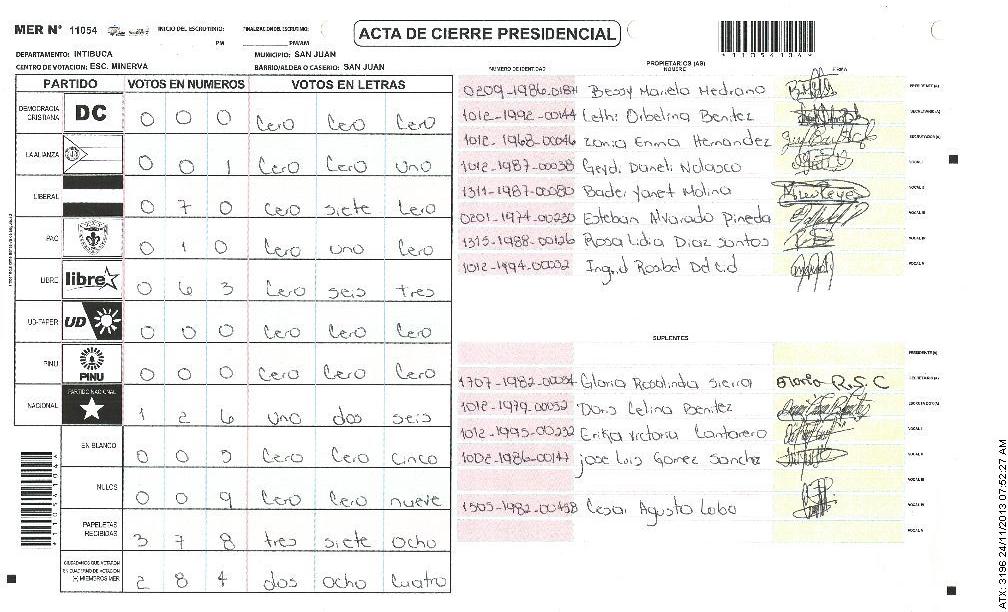 MER Nº 11054 INICIO DEL ESCRUTINIO: PM FINALIZACION DEL ESCRUTINIO: PM/AM
ACTA DE CIERRE PRESIDENCIAL
DEPARTAMENTO: INTIBUCA MUNICIPIO: SAN JUAN
CENTRO DE VOTACION: ESC. MINERVA BARRIO/ALDEA O CASERIO: SAN JUAN
PARTIDO VOTOS EN NUMEROS VOTOS EN LETRAS
DEMOCRACIA CRISTIANA DC 0 0 0 Cero Cero Cero
LA ALIANZA 0 0 1 Cero Cero uno
LIBERAL 0 7 0 Cero siete Cero
PAC 0 1 0 Cero uno Cero
LIBRE libre 0 6 3 Cero seis tres
UD-FAPER UD 0 0 0 Cero Cero Cero
PINU PINU 0 0 0 Cero Cero Cero
NACIONAL PARTIDO NACIONAL 1 2 6 uno dos seis
EN BLANCO 0 0 5 Cero Cero Cinco
NULOS 0 0 9 Cero Cero nueve
PAPELETAS RECIBIDAS 3 7 8 tres siete ocho
CIUDADANOS QUE VOTARON EN CUADERNO DE VOTACION (+) MIEMBROS MER 2 8 4 dos ocho cuatro
NUMERO DE IDENTIDAD PROPIETARIOS (AS) NOMBRE FIRMA
0209-1986-0187 Bessy Mariela Medrano PRESIDENTE(A)
1012-1992-00144 Lethi Orbelina Benitez SECRETARIO(A)
1012-1968-00046 Zonia Enma Hernandez ESCRUTADOR(A)
1012-1987-00038 Geydi Daneli Nolasco VOCAL I
1311-1987-00080 Bader Yanet Molina VOCAL II
0201-1974-00230 Esteban Alvarado Pineda VOCAL III
1315-1988-00126 Rosa Lidia Diaz Santos VOCAL IV
1012-1994-00032 Ingrid Rosbel Del Cid VOCAL V
SUPLENTES
PRESIDENTE(A)
1707-1982-00054 Gloria Rosalinda Sierra Gloria R.S.C SECRETARIO(A)
1012-1979-00052 Doris Celina Benitez ESCRUTADOR(A)
1012-1995-00232 Erika Victoria Cantarero VOCAL I
1002-1986-00147 jose Luis Gomez Sanchez VOCAL II
VOCAL III
1505-1982-00458 Cesar Agusto Lobo VOCAL IV
VOCAL V
ATX: 3196 24/11/2013 07:52:27 AM